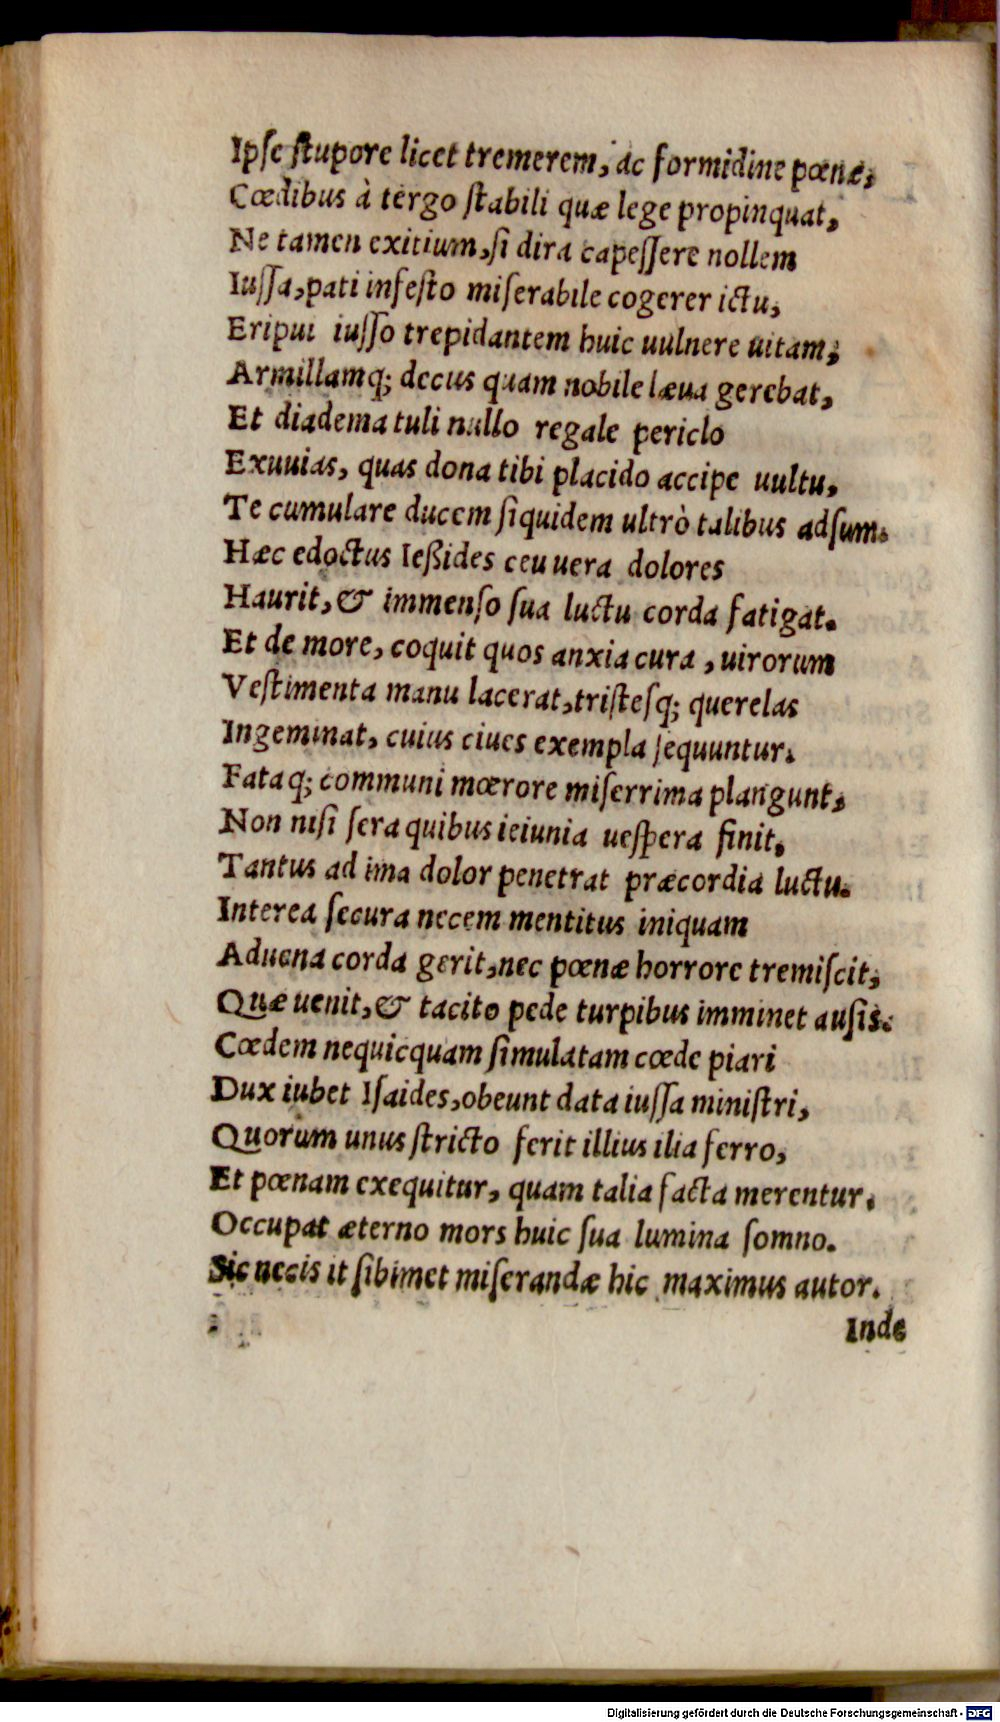 Ipſe ſtupore licet tremerem, ac formidine pœnæ,
Cœdibus à tergo ſtabili quæ lege propinquat,
Ne tamen exitium, ſi dira capeſſere nollem
Iuſſa, pati infeſto miſerabile cogerer ictu,
Eripui iuſſo trepidantem huic uulnere uitam;
Armillamq; decus quam nobile læua gerebat,
Et diadema tuli nullo regale periclo
Exuuias, quas dona tibi placido accipe uultu,
Te cumulare ducem ſiquidem ultrò talibus adſum.
Hæc edoctus Ießides ceu uera dolores
Haurit, & immenſo ſua luctu corda fatigat.
Et de more, coquit quos anxia cura, uirorum
Veſtimenta manu lacerat, triſteſq; querelas
Ingeminat, cuius ciues exempla ſequuntur.
Fataq; communi mœrore miſerrima plangunt,
Non niſi ſera quibus ieiunia ueſpera finit.
Tantus ad ima dolor penetrat præcordia luctu.
Interea ſecura necem mentitus iniquam
Aduena corda gerit, nec pœnæ horrore tremiſcit,
Quæ uenit, & tacito pede turpibus imminet auſis.
Cœdem nequicquam ſimulatam cœde piari
Dux iubet Iſaides, obeunt data iuſſa miniſtri,
Quorum unus ſtricto ferit illius ilia ferro,
Et pœnam exequitur, quam talia facta merentur.
Occupat æterno mors huic ſua lumina ſomno.
Sic necis it ſibimet miſerandæ hic maximus autor.
Inde
Digitalisierung gefördert durch die Deutsche Forschungsgemeinschaft - DFG